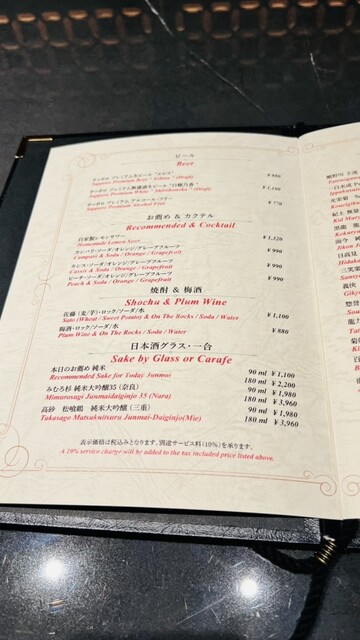 ビール
Beer
サッポロ プレミアム生ビール "ヱビス"
Sapporo Premium Beer " Yebisu " (Draft)
¥ 880
サッポロ プレミアム無濾過生ビール "白穂乃香"
Sapporo Premium White " Shirohonoka " (Draft)
¥ 1,100
サッポロ プレミアム アルコール・フリー
Sapporo Premium Alcohol Free
¥ 770
お薦め & カクテル
Recommended & Cocktail
自家製レモンサワー
Homemade Lemon Sour
¥ 1,320
カンパリ・ソーダ/オレンジ/グレープフルーツ
Campari & Soda / Orange / Grapefruit
¥ 990
カシス・ソーダ/オレンジ/グレープフルーツ
Cassis & Soda / Orange / Grapefruit
¥ 990
ピーチ・ソーダ/オレンジ/グレープフルーツ
Peach & Soda / Orange / Grapefruit
¥ 990
焼酎 & 梅酒
Shochu & Plum Wine
佐藤 (麦/芋)・ロック/ソーダ/水
Sato (Wheat / Sweet Potato) & On The Rocks / Soda / Water
¥ 1,100
梅酒・ロック/ソーダ/水
Plum Wine & On The Rocks / Soda / Water
¥ 880
日本酒グラス・一合
Sake by Glass or Carafe
本日のお薦め 純米
90 ml ¥ 1,100
Recommended Sake for Today Junmai
180 ml ¥ 2,200
みむろ杉 純米大吟醸35 (奈良)
90 ml ¥ 1,980
Mimurosugi Junmaidaiginjo 35 (Nara)
180 ml ¥ 3,960
高砂 松喰鶴 純米大吟醸 (三重)
90 ml ¥ 1,980
Takasago Matsukuitsuru Junmai-Daiginjo(Mie)
180 ml ¥ 3,960
表示価格は税込みとなります。別途サービス料(10%)を承ります。
A 10% service charge will be added to the tax included price listed above.